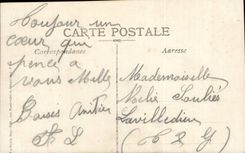 Toujour un
cœur qui
pence a
vous Mille
Baisés Amitier
F L
CARTE POSTALE
Correspondance
Adresse
Mademoiselle
Melie Souliés
Lavilledieu
(T & G)